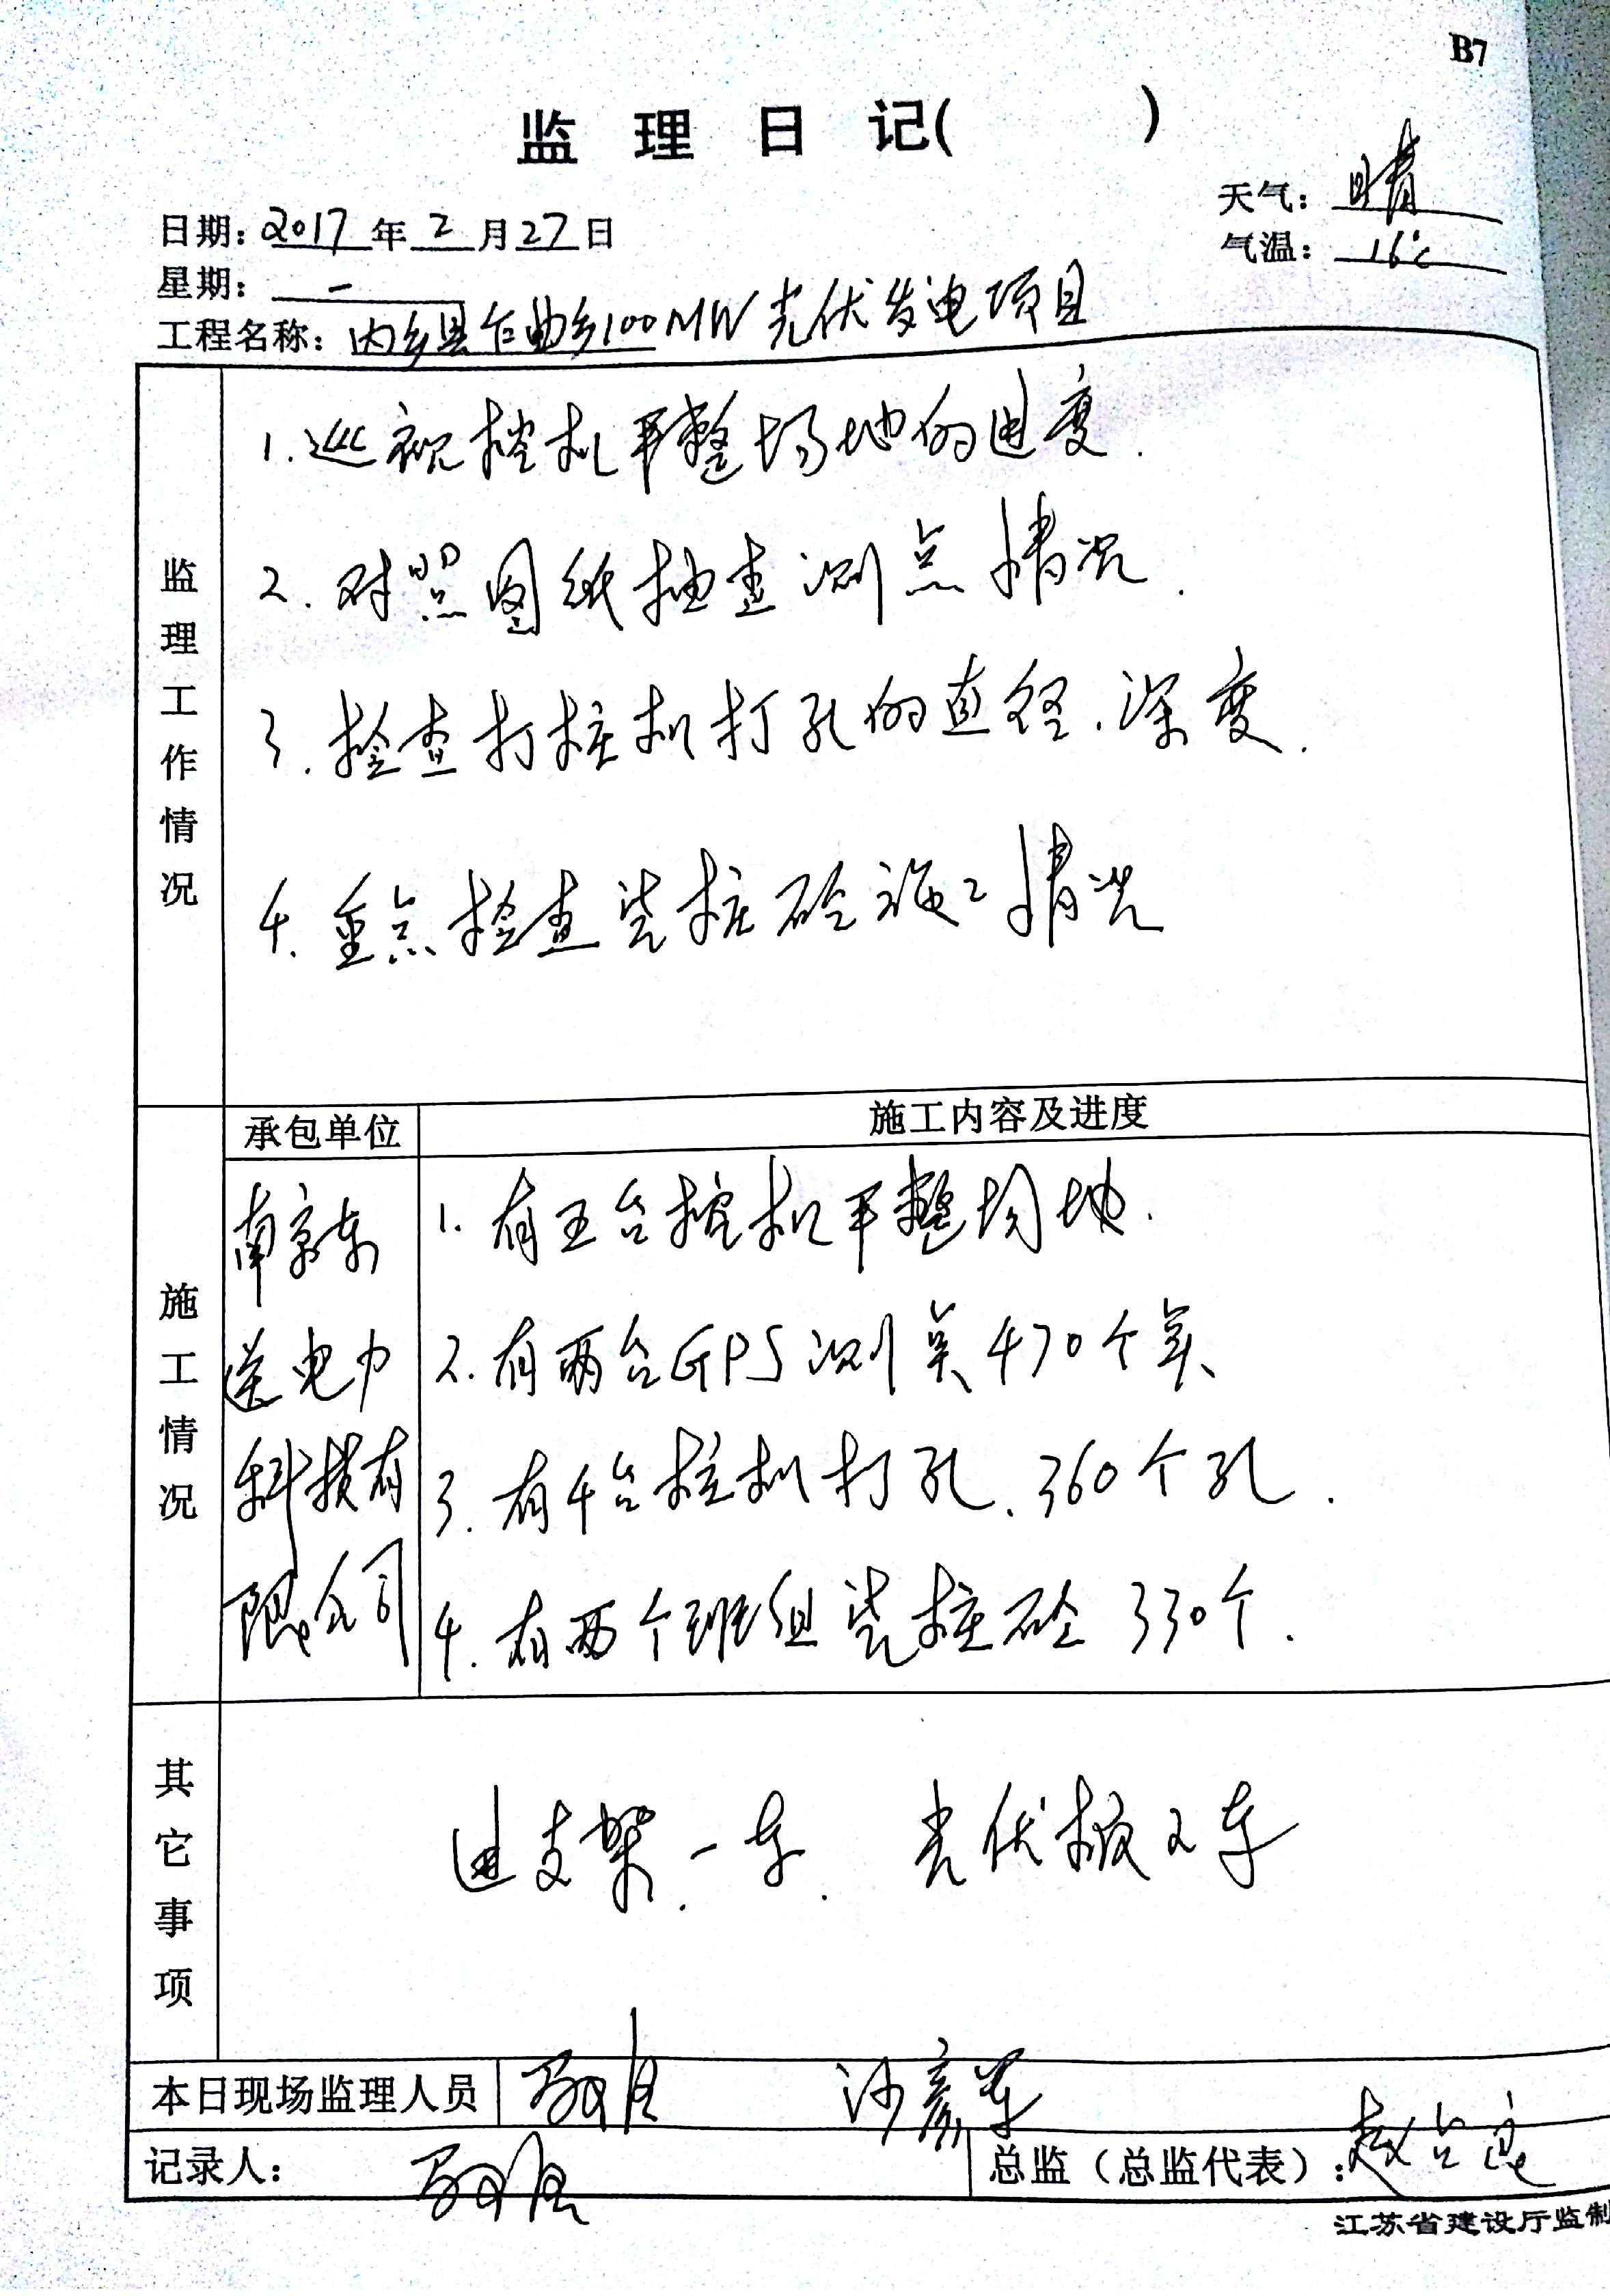 B7
监 理 日 记( )
天气: 晴
日期: 2017 年 2 月 27 日
气温: 16℃
星期: 一
工程名称: 内乡县乍曲乡100MW光伏发电项目
监理工作情况
1. 巡视挖机平整场地的进度.
2. 对照图纸抽查测点情况.
3. 检查打桩机打孔的直径、深度.
4. 重点检查浇桩砼施工情况
承包单位
施工内容及进度
施工情况
南京东
送电力
科技有
限公司
1. 有五台挖机平整场地.
2. 有两台GPS测点470个点
3. 有4台桩机打孔、360个孔.
4. 有两个班组浇桩砼 330个.
其它事项
进支架一车. 光伏板2车
本日现场监理人员 沙彦军
记录人:
总监(总监代表): 赵
江苏省建设厅监制